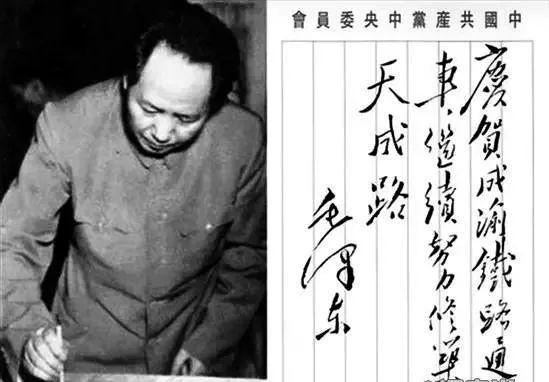 中國共產黨中央委員會
慶賀成渝鐵路通
車，繼續努力修築
天成路
毛澤东